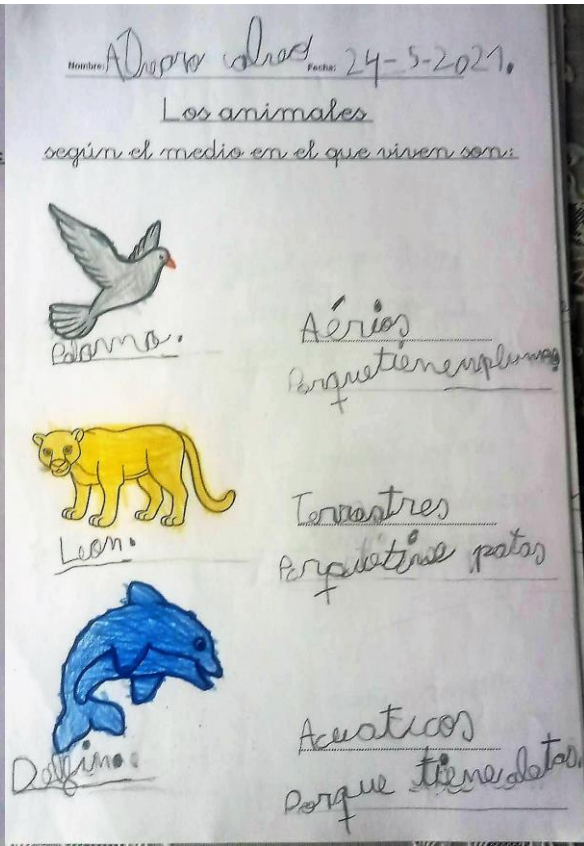 Nombre: Fecha: 24-5-2021.
Los animales
según el medio en el que viven son:
Paloma.
Aérios
Porque tienen plumas
Leon.
Terrestres
Porque tiene patas
Delfino.
Acuaticos
Porque tiene aletas.